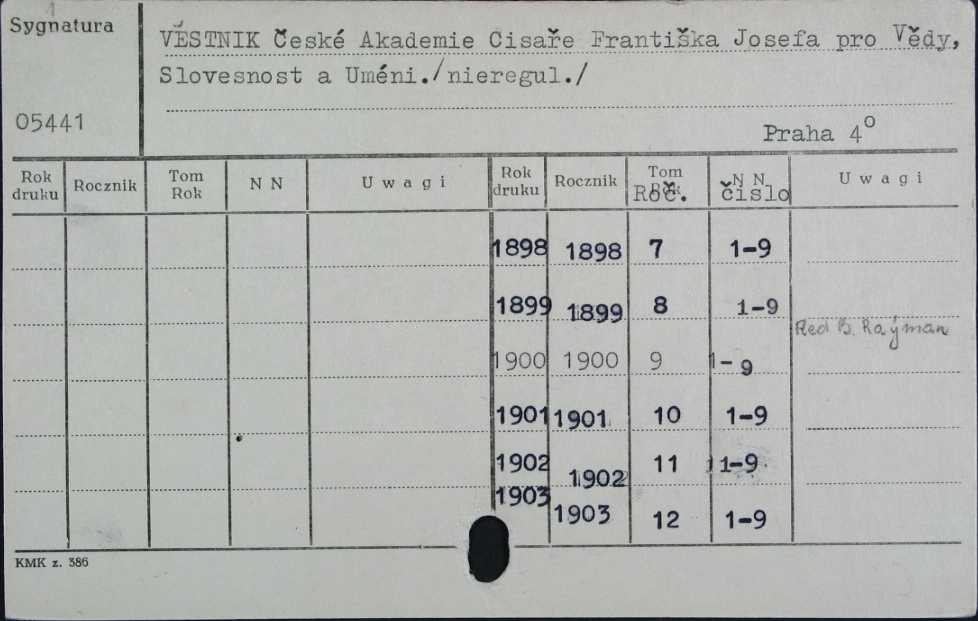 Sygnatura
VĚSTNIK České Akademie Cisaře Františka Josefa pro Vědy,
Slovesnost a Uméni./nieregul./
05441
Praha 4⁰
Rok druku Rocznik Tom Rok N N Uwagi Rok druku Rocznik Tom Roč. N N čislo Uwagi
1898 1898 7 1-9
1899 1899 8 1-9
Red B. Raýman
1900 1900 9 1-9
1901 1901 10 1-9
1902 1902 11 1-9
1903 1903 12 1-9
KMK z. 386